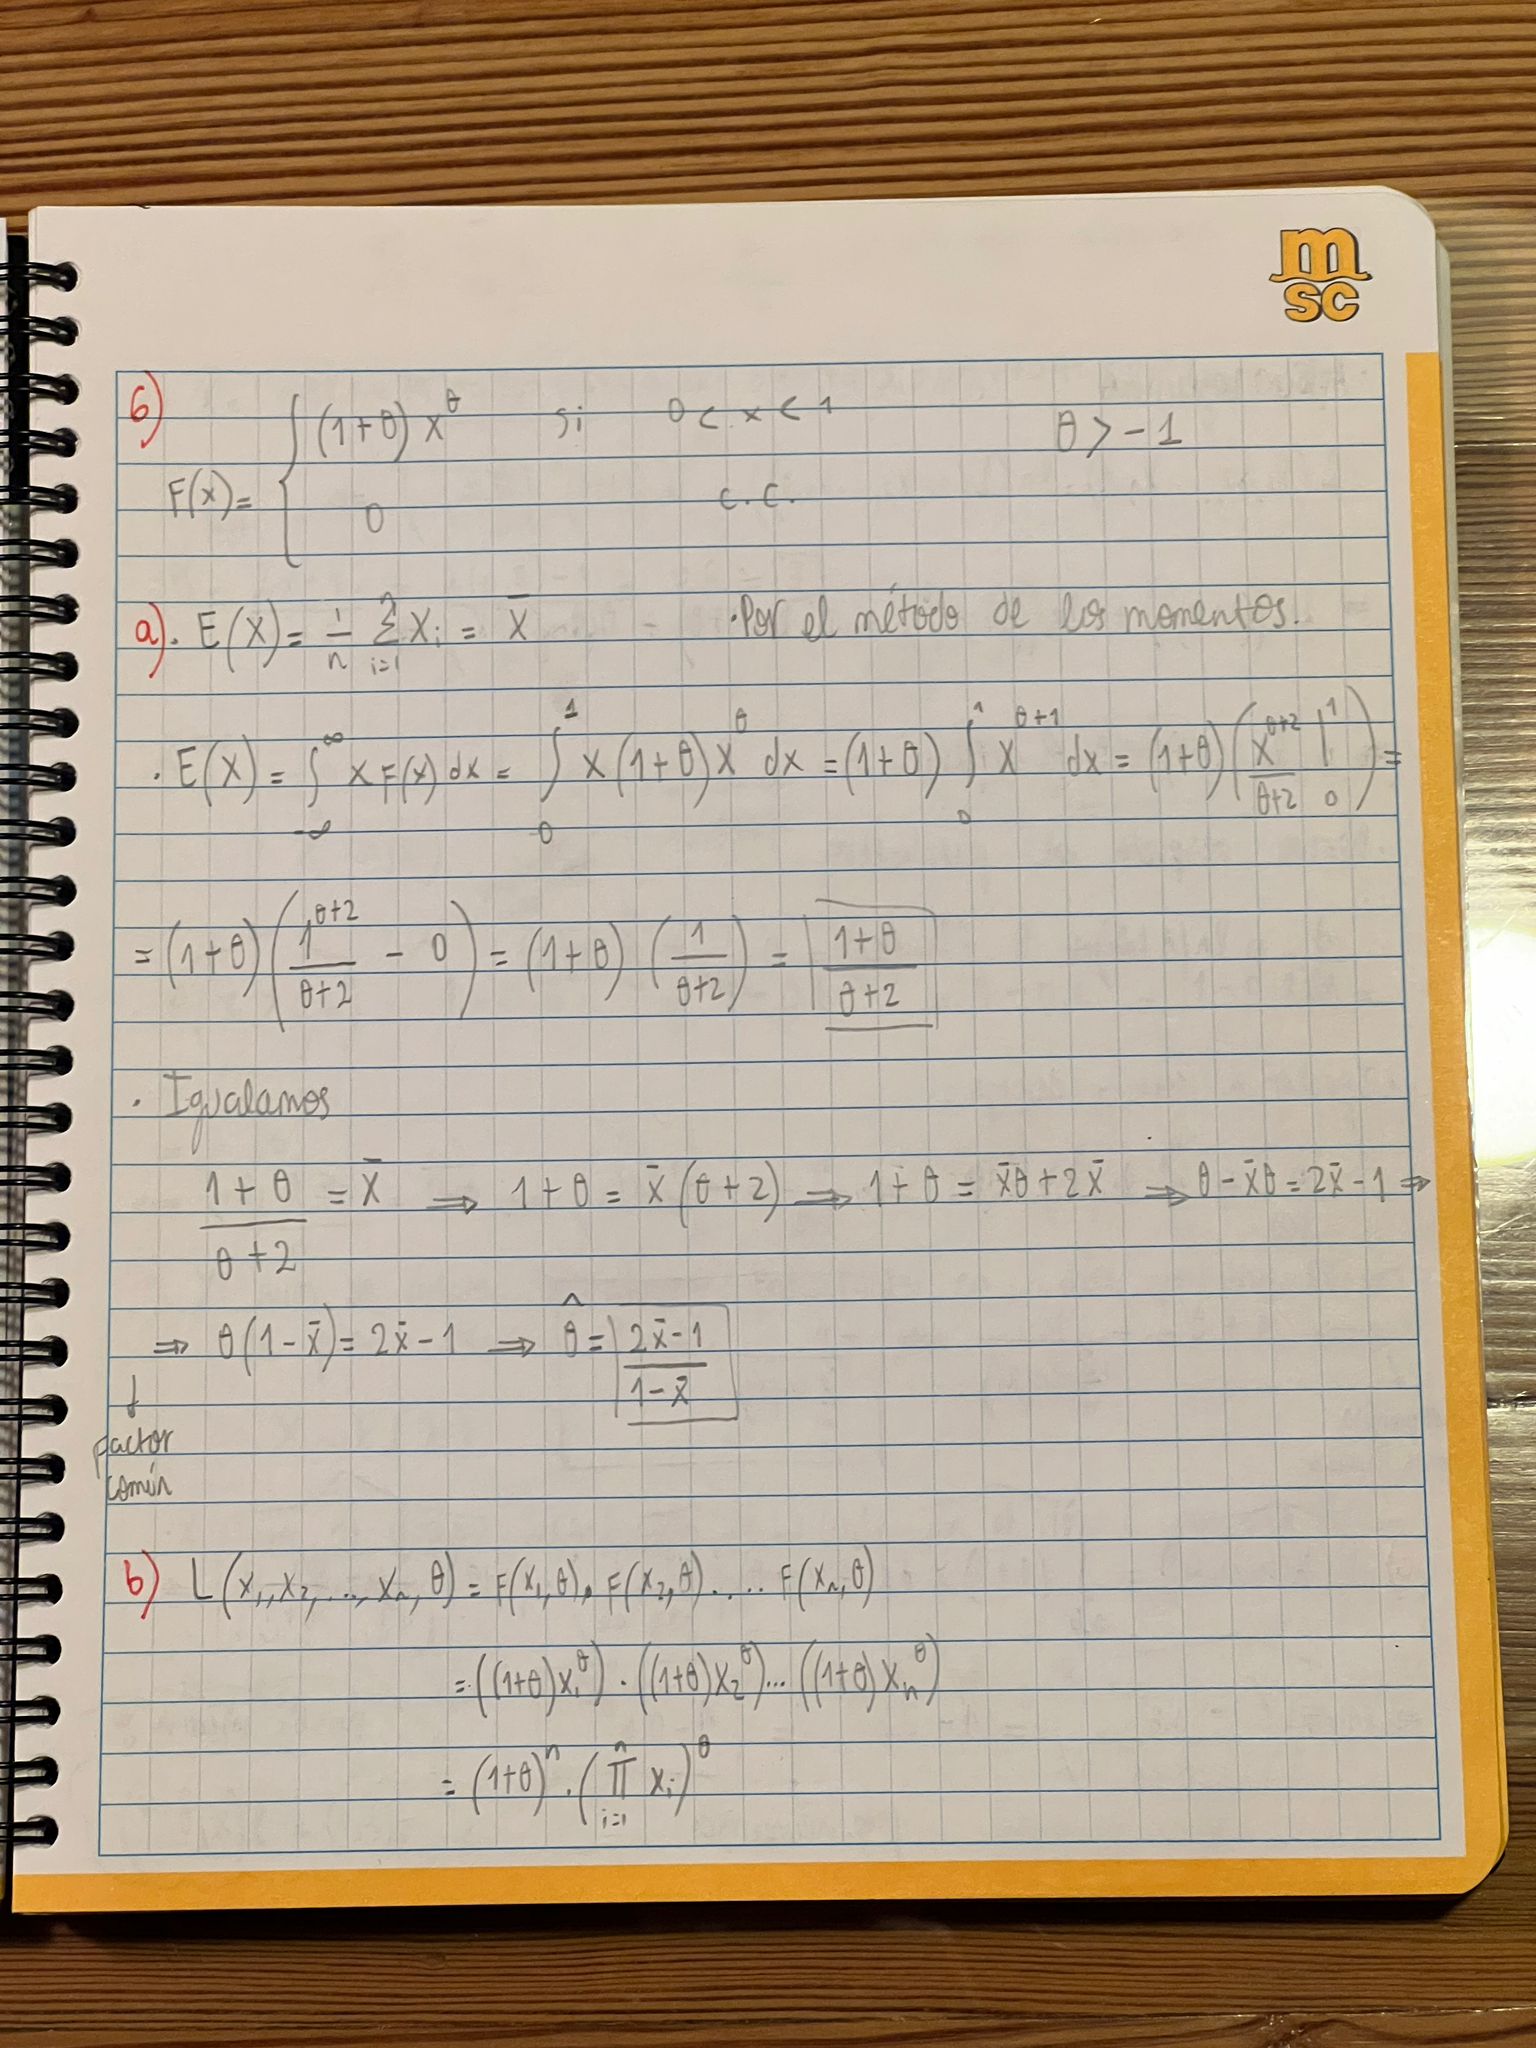 msc
6)
F(x)= { (1+θ) x^θ si 0 < x < 1 θ > -1
0 c.c.
a) · E(X) = 1/n Σ_{i=1}^n X_i = X̄ · Por el método de los momentos.
· E(X) = ∫_{-∞}^{∞} x F(x) dx = ∫_0^1 x (1+θ) x^θ dx = (1+θ) ∫_0^1 x^{θ+1} dx = (1+θ) (x^{θ+2}/(θ+2) |_0^1) =
= (1+θ) (1^{θ+2}/(θ+2) - 0) = (1+θ) (1/(θ+2)) = (1+θ)/(θ+2)
· Igualamos
(1+θ)/(θ+2) = x̄ ⇒ 1+θ = x̄ (θ+2) ⇒ 1+θ = x̄θ + 2x̄ ⇒ θ - x̄θ = 2x̄ - 1 ⇒
⇒ θ(1-x̄) = 2x̄ - 1 ⇒ θ̂ = (2x̄-1)/(1-x̄)
↓
factor
común
b) L(x₁, x₂, ..., xₙ, θ) = F(x₁, θ) · F(x₂, θ) · ... F(xₙ, θ)
= ((1+θ)x₁^θ) · ((1+θ)x₂^θ) ... ((1+θ)xₙ^θ)
= (1+θ)^n · (∏_{i=1}^n x_i)^θ